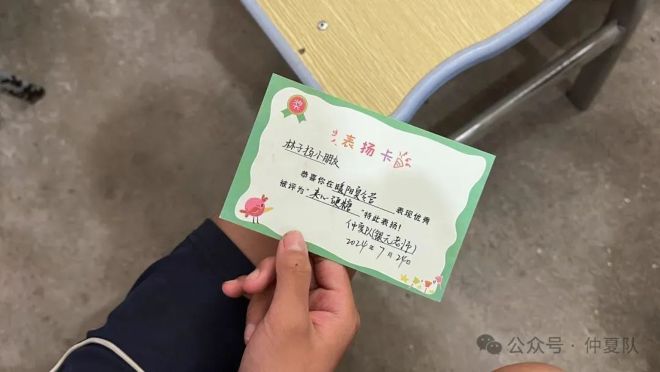 奖
表扬卡
林子扬小朋友
恭喜你在暖阳夏令营表现优秀
被评为“夹心硬糖”特此表扬!
仲夏队(银元老师)
2024年7月24日
公众号·仲夏队